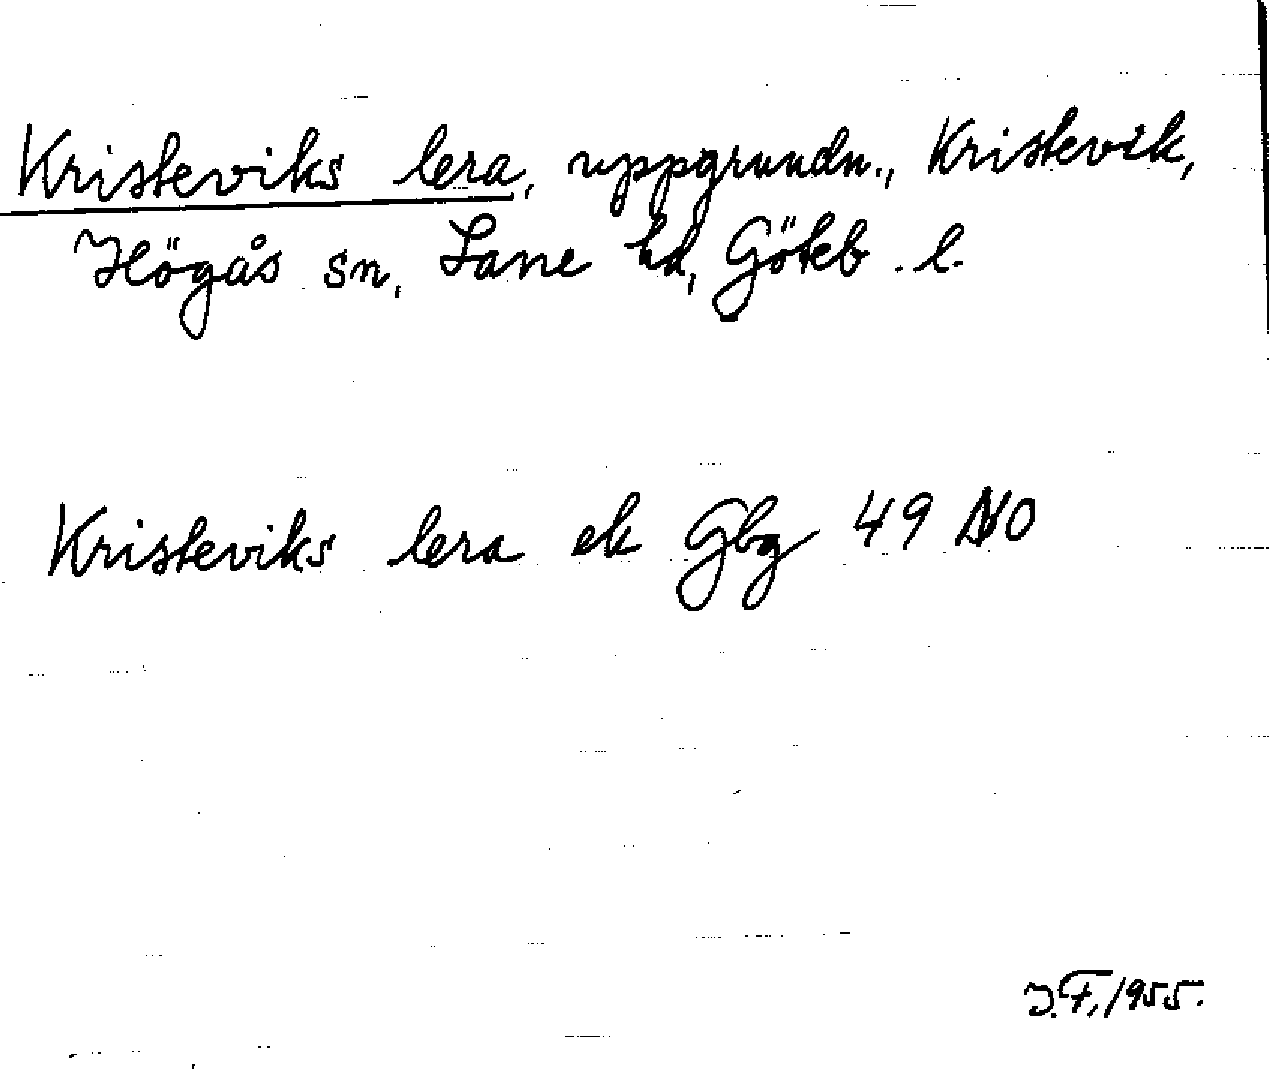 Kristeviks lera, uppgrundn., Kristevik,
Högås sn, Lane hd, Göteb. l.
Kristeviks lera ek Gbg 49 NO
J.F, 1955.